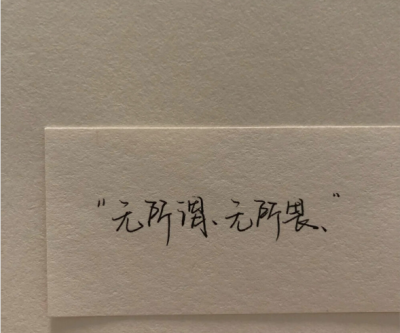 “无所谓、无所畏、”